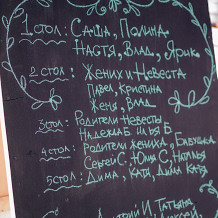 1 стол: Саша, Полина,
Настя, Влад, Ярик
2 стол: Жених и Невеста
Павел, Кристина
Женя, Влад
3 стол: Родители Невесты
Надежда Б. Илья Б.
4 стол: Родители жениха, Бабушка
Сергей С. Юлия С., Наталья
5 стол: Дима, Катя, Дима, Катя
Татьяна,
Алексей